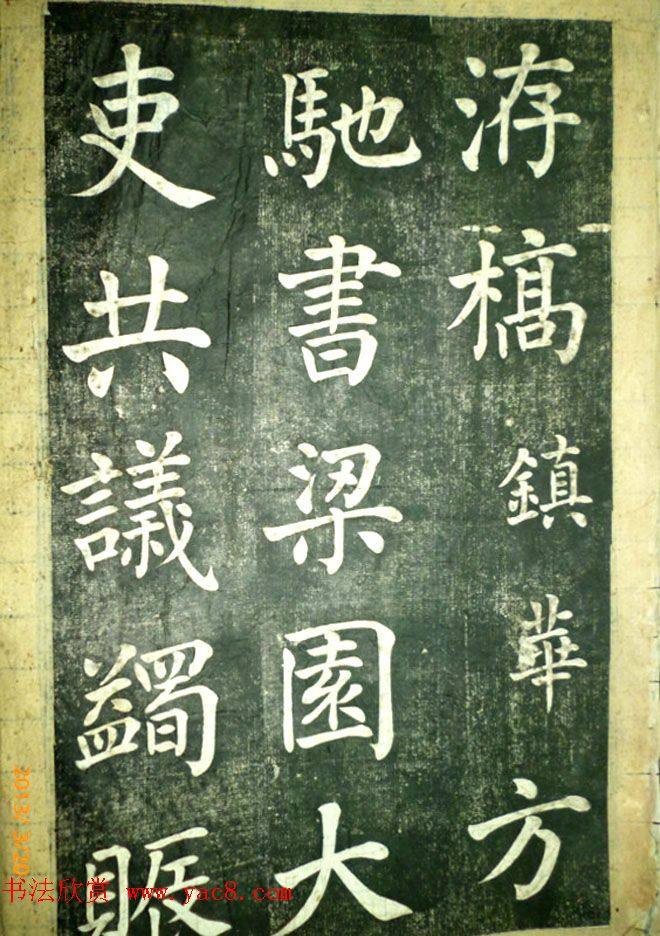 洊槁鎮華方
馳書梁園大
吏共議蠲賑
2013/3/20
书法欣赏 www.yac8.com